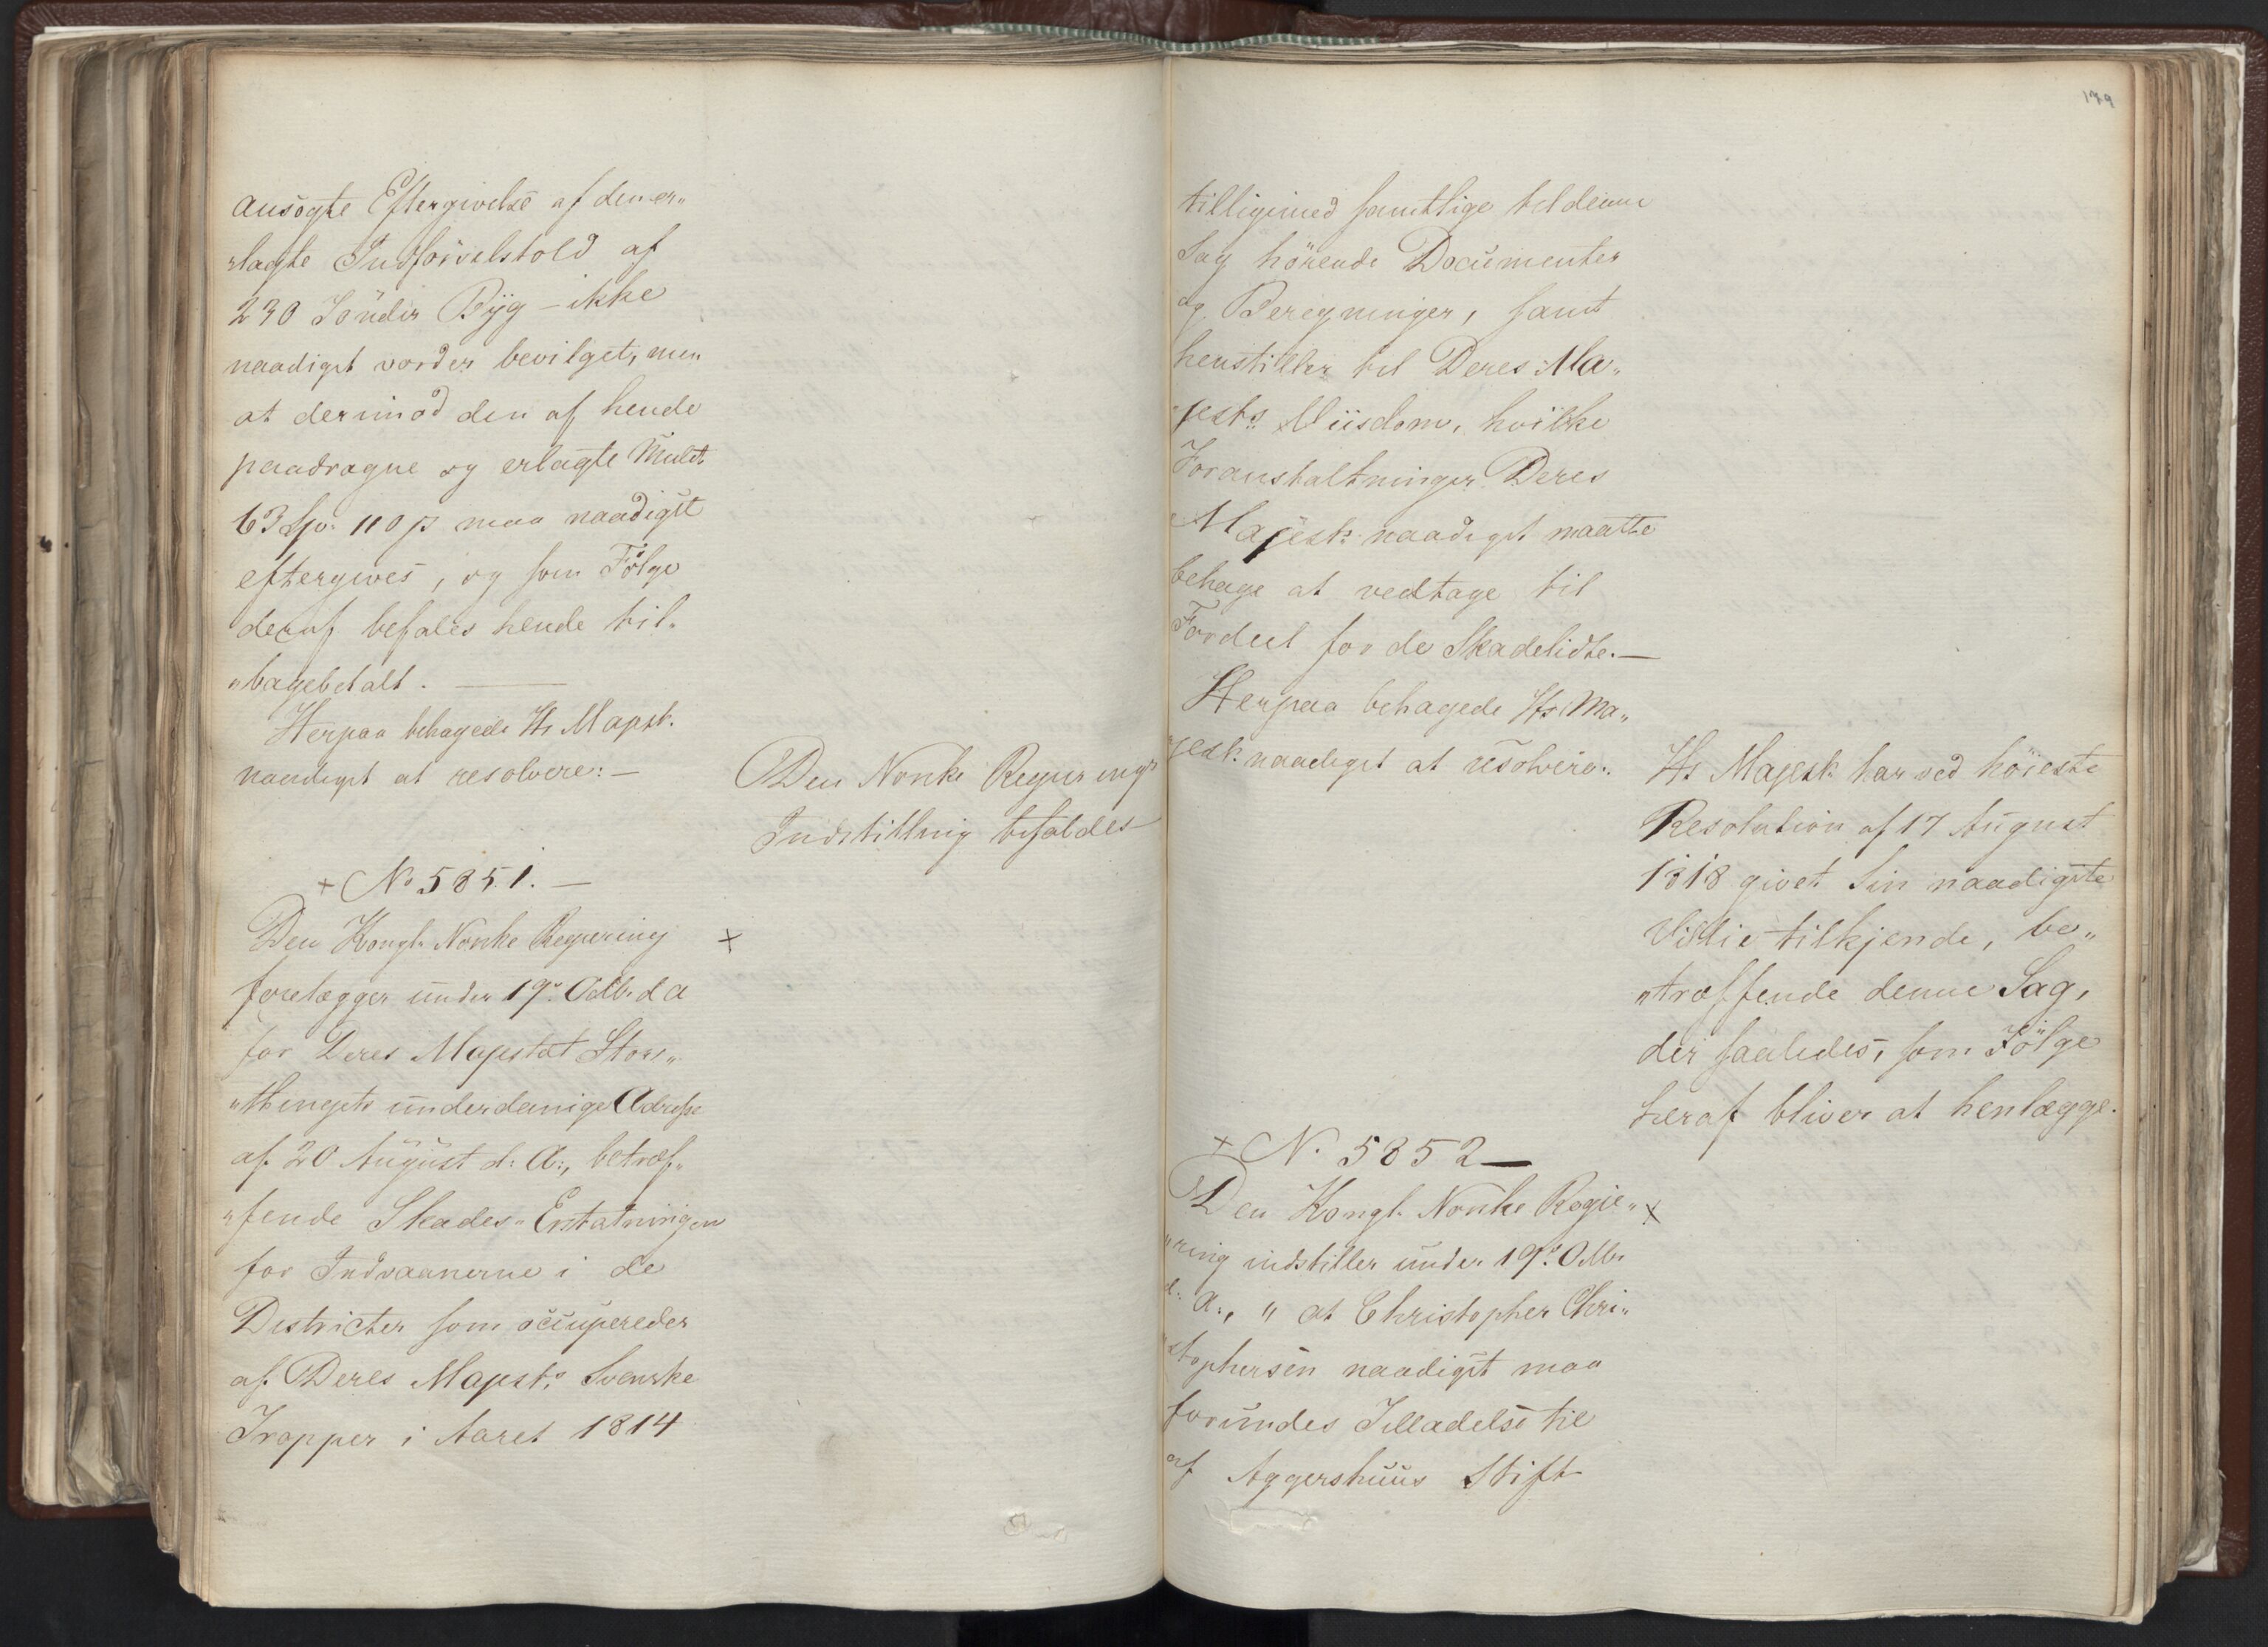 ansögte Eftergivelse af den er„
„lagte Indförselstold af
230 Tönder Byg – ikke
naadigst vorder bevilget, men
at derimod den af hende
paadragne og erlagte Mulct.
63 Sp: 110 ß maa naadigst
eftergives, og som Fölge
deraf befales hende til„
„bagebetalt. —
Herpaa behagede Hs Majest.
naadigst at resolvere: —
Den Norske Regjerings
Indstilling bifaldes —
+ No 5851. —
Den Kongl. Norske Regjering +
forelægger under 19de Octb. d a
for Deres Majestæt Stor„
„thingets underdanige Adresse
af 20 August d: A:, betræf„
„fende Skades„Erstatningen
for Indvaanerne i de
Districter som occuperedes
af Deres Majests Svenske
Tropper i Aaret 1814
179
tilligemed samtlige til denne
Sag hörende Documenter
og Beregninger, samt
henstiller til Deres Ma„
jests Viisdom, hvilke
Foranstaltninger Deres
Majest: naadigst maatte
behage at vedtage til
Fordeel for de Skadelidte. —
Herpaa behagede Hs Ma„
jest. naadigst at resolvere:
Hs Majest. har ved höieste
Resolution af 17 August
1818 givet Sin naadigste
Villie tilkjende, be„
„træffende denne Sag,
der saaledes, som Fölge
heraf bliver at henlægge.
+ N. 5852 —
Den Kongl. Norske Regie„ +
„ring indstiller under 19de Octbr
d: A:, „ at Christopher Chri„
„stophersen naadigst maa
forundes Tilladelse til
af Aggershuus Stift